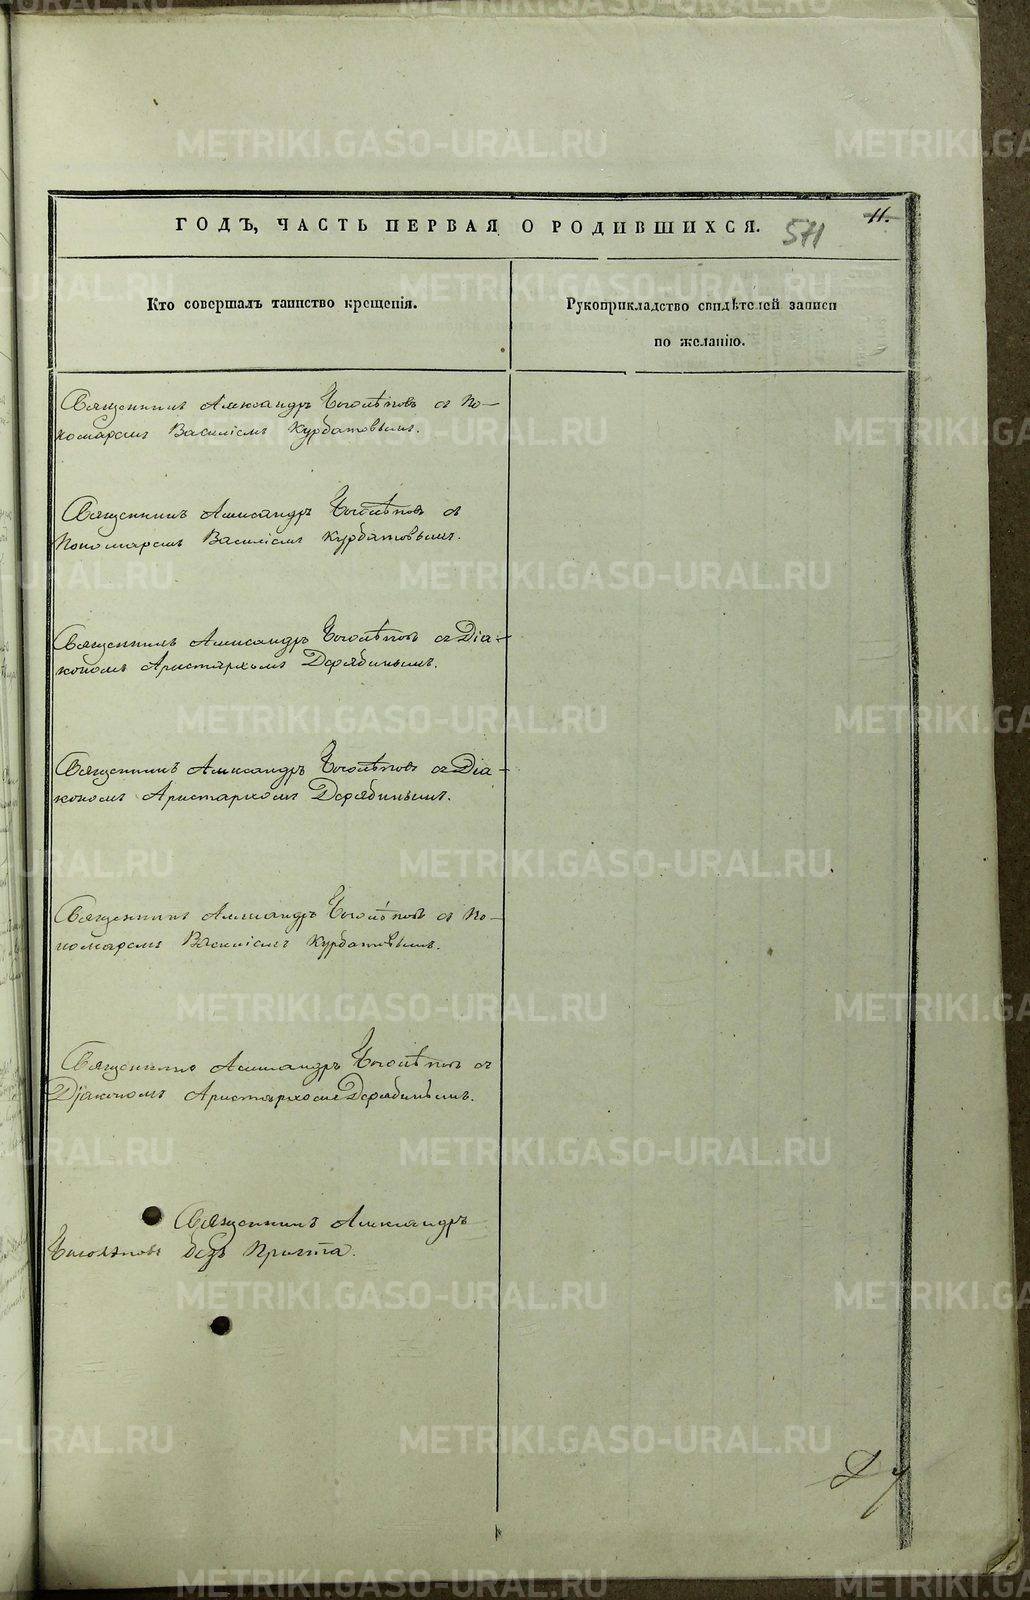 ГОДЪ, ЧАСТЬ ПЕРВАЯ О РОДИВШИХСЯ.
571
11.
Кто совершалъ таинство крещенія.
Рукоприкладство свидѣтелей записи
по желанію.
Священникъ Александръ Боголѣповъ съ По-
номаремъ Василіемъ Курбатовымъ.
Священникъ Александръ Боголѣповъ съ
Пономаремъ Василіемъ Курбатовымъ.
Священникъ Александръ Боголѣповъ съ Діа-
кономъ Аристархомъ Дерябинымъ.
Священникъ Александръ Боголѣповъ съ Діа-
кономъ Аристархомъ Дерябинымъ.
Священникъ Александръ Боголѣповъ съ По-
номаремъ Василіемъ Курбатовымъ.
Священникъ Александръ Боголѣповъ съ
Діакономъ Аристархомъ Дерябинымъ.
Священникъ Александръ
Боголѣповъ безъ Причта.
METRIKI.GASO-URAL.RU